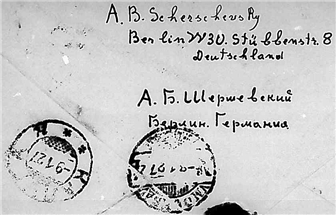 A. B. Scherschevsky
Berlin W30. Stübbenstr. 8
Deutschland
А. Б. Шершевский
Берлин. Германиа